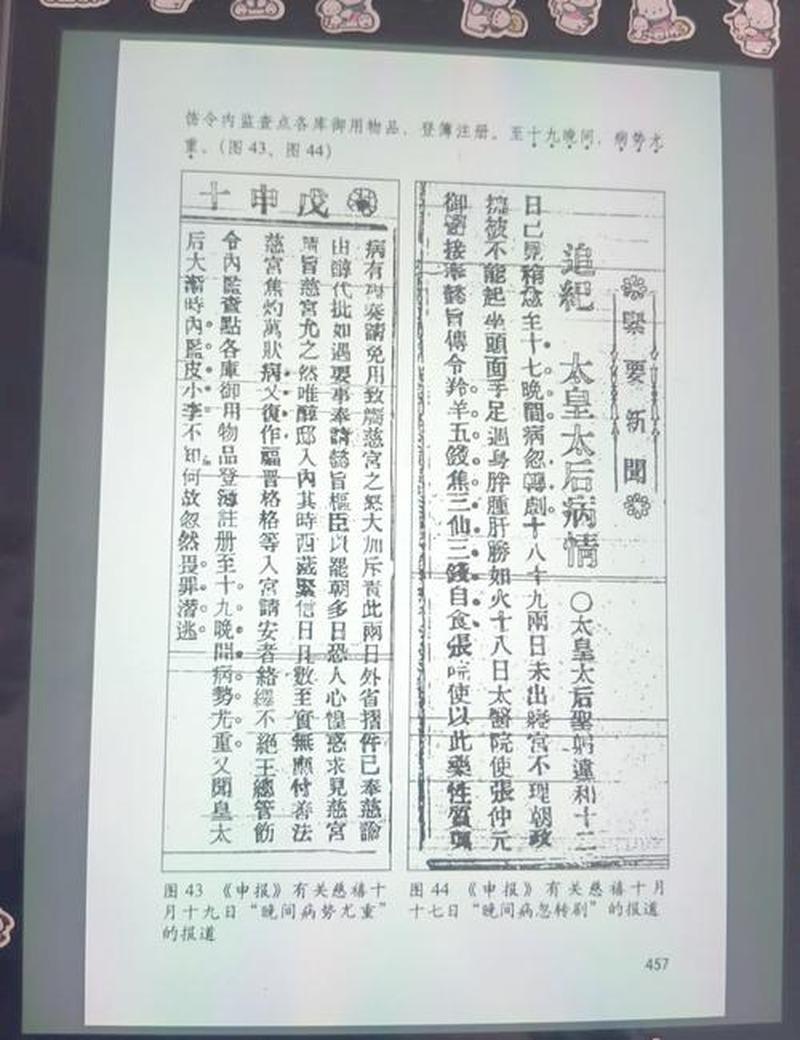 饬令内监查点各库御用物品，登簿注册。至十九晚间，病势尤
重。（图 43、图 44）
緊要新聞
追紀 太皇太后病情 ○太皇太后聖躬違和十二
日已見稍念至十七晚間病忽轉劇十八十九兩日未出寢宮不理朝政
不能起坐頭面手足遍身腫肝勝如火十八日太醫院使張仲元
御選接奉懿旨傳令羚羊五錢焦三仙三錢自食張院使以此藥性質
戊申十
病有奏請免用致觸慈宮之怒大加斥責此兩日外省摺件已奉慈諭
由醇代批如遇要事奉請懿旨樞臣以罷朝多日恐人心惶惑求見慈宮
請旨慈宮允之然唯醇邸入內其時西藏緊信日且數至實無應付善法
慈宮焦灼萬狀病又復作福晋格格等入宮請安者絡繹不絕王總管飭
令內監查點各庫御用物品登簿註册至十九晚間病勢尤重又聞皇太
后大漸時內監皮小李不知何故忽然畏罪潛逃
图 43 《申报》有关慈禧十
月十九日“晚间病势尤重”
的报道
图 44 《申报》有关慈禧十月
十七日“晚间病忽转剧”的报道
457